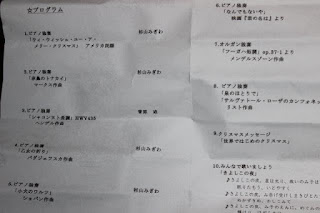 ☆プログラム
1.ピアノ独奏 杉山みぎわ
「ウィ・ウィッシュ・ユー・ア・
メリー・クリスマス」 アメリカ民謡
2.ピアノ独奏 杉山みぎわ
「赤鼻のトナカイ」
マークス作曲
3.ピアノ独奏
「シャコンヌト長調」HWV435
ヘンデル作曲
4.ピアノ独奏 杉山みぎわ
「乙女の祈り」
バダジェフスカ作曲
5.ピアノ独奏 杉山みぎわ
「小犬のワルツ」
ショパン作曲
6.ピアノ独奏
「なんでもないや」
映画『君の名は』より
7.オルガン独奏
「フーガハ短調」op.37-1より
メンデルスゾーン作曲
8.ピアノ独奏
「泉のほとりで」
「サルヴァトール・ローザのカンツォネッ
リスト作曲
9.クリスマスメッセージ
「世界ではじめのクリスマス」
10.みんなで歌いましょう
「きよしこの夜」
♪きよしこの夜、星は光り、救いのみ子は